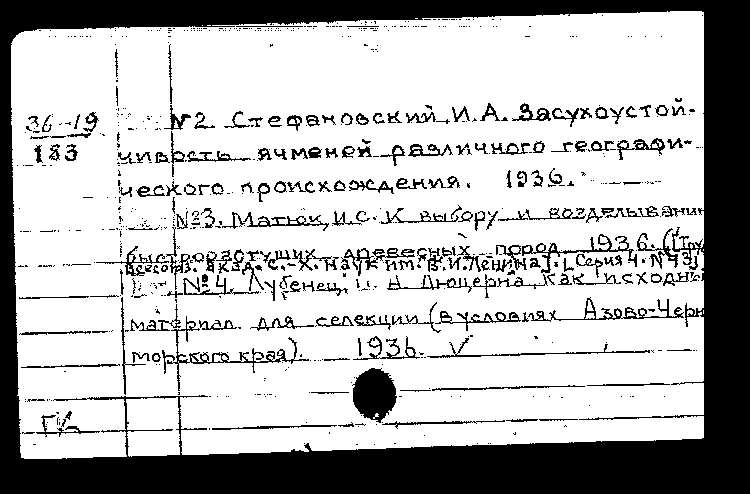 36-19
183
№2 Стефановский, И.А. Засухоустой-
чивость ячменей различного географи-
ческого происхождения. 1936.
№3. Матюк, И.С. К выбору и возделыванию
быстрорастущих древесных пород 1936. ([Тру
Всесоюз. акад. с.-х. наук им. В.И. Ленина]. [Серия 4. №43]
№4. Лубенец, П. А. Люцерна, как исходны
материал для селекции (в условиях Азово-Черн
морского края). 1936. V